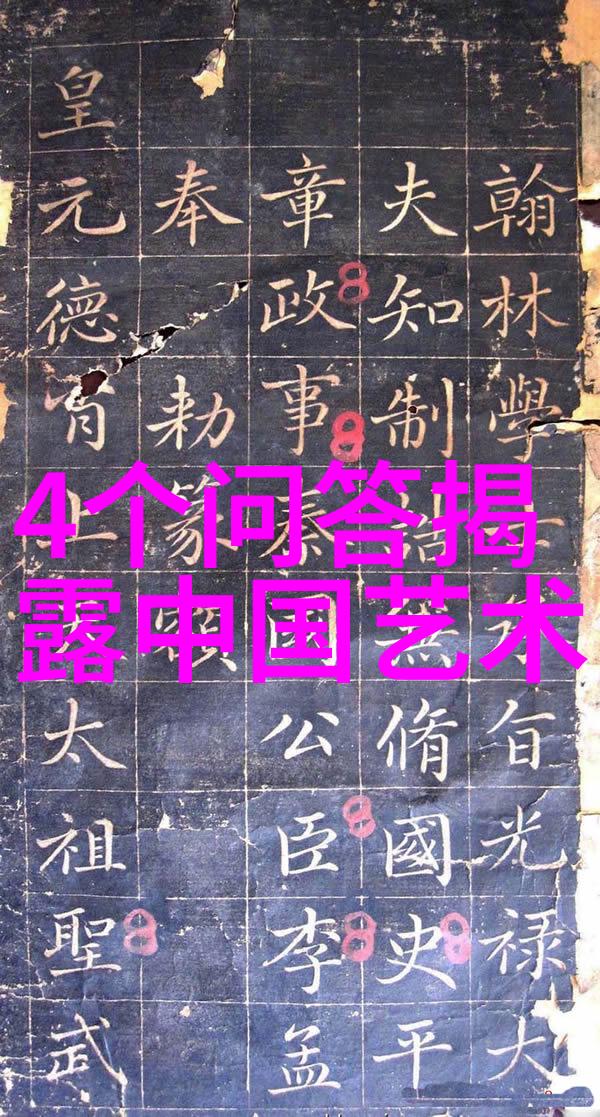 翰林學自光禄大
夫知制誥脩國史平
章政事秦國公臣李孟
奉勅篆額
皇元德太祖聖武
4个问答揭
露中国艺术